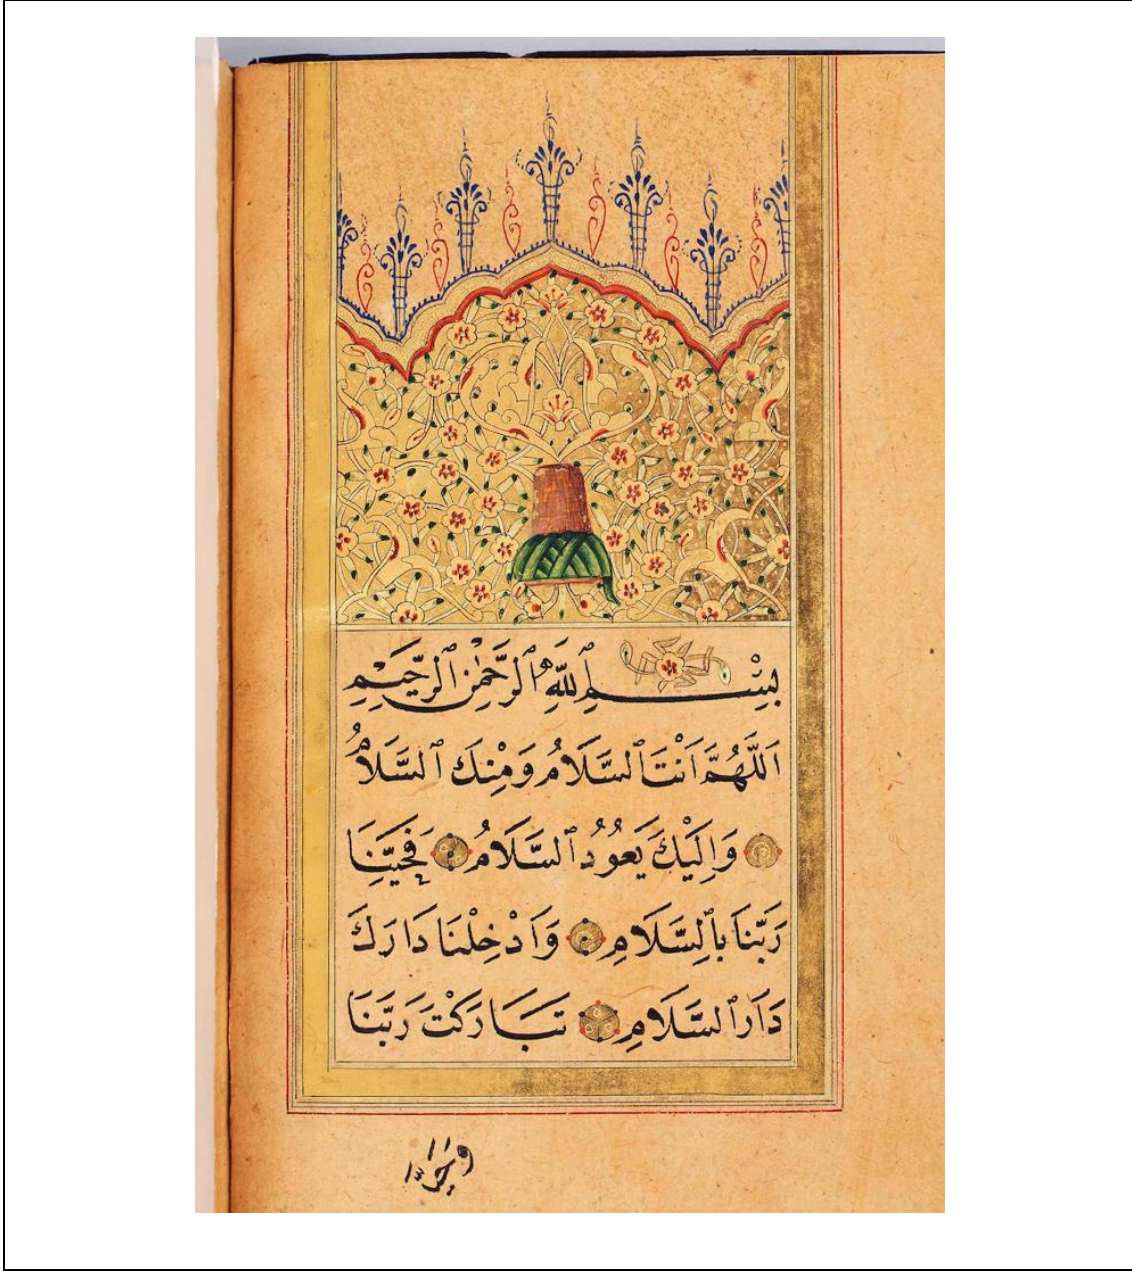 بِسْمِ ٱللّٰهِ ٱلرَّحْمٰنِ ٱلرَّحِيمِ
اَللّٰهُمَّ اَنْتَ ٱلسَّلَامُ وَمِنْكَ ٱلسَّلَامُ
وَاِلَيْكَ يَعُودُ ٱلسَّلَامُ فَحَيِّنَا
رَبَّنَا بِٱلسَّلَامِ وَاَدْخِلْنَا دَارَكَ
دَارَ ٱلسَّلَامِ تَبَارَكْتَ رَبَّنَا